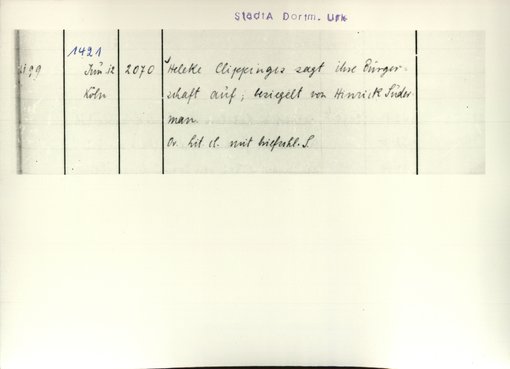 StadtA Dortm. Urk
1421
99 Jun. 12 2070 Heleke Clippinges sagt ihre Bürger-
Köln schaft auf; besiegelt von Henrick Süder
man
Or. lit. cl. mit S.